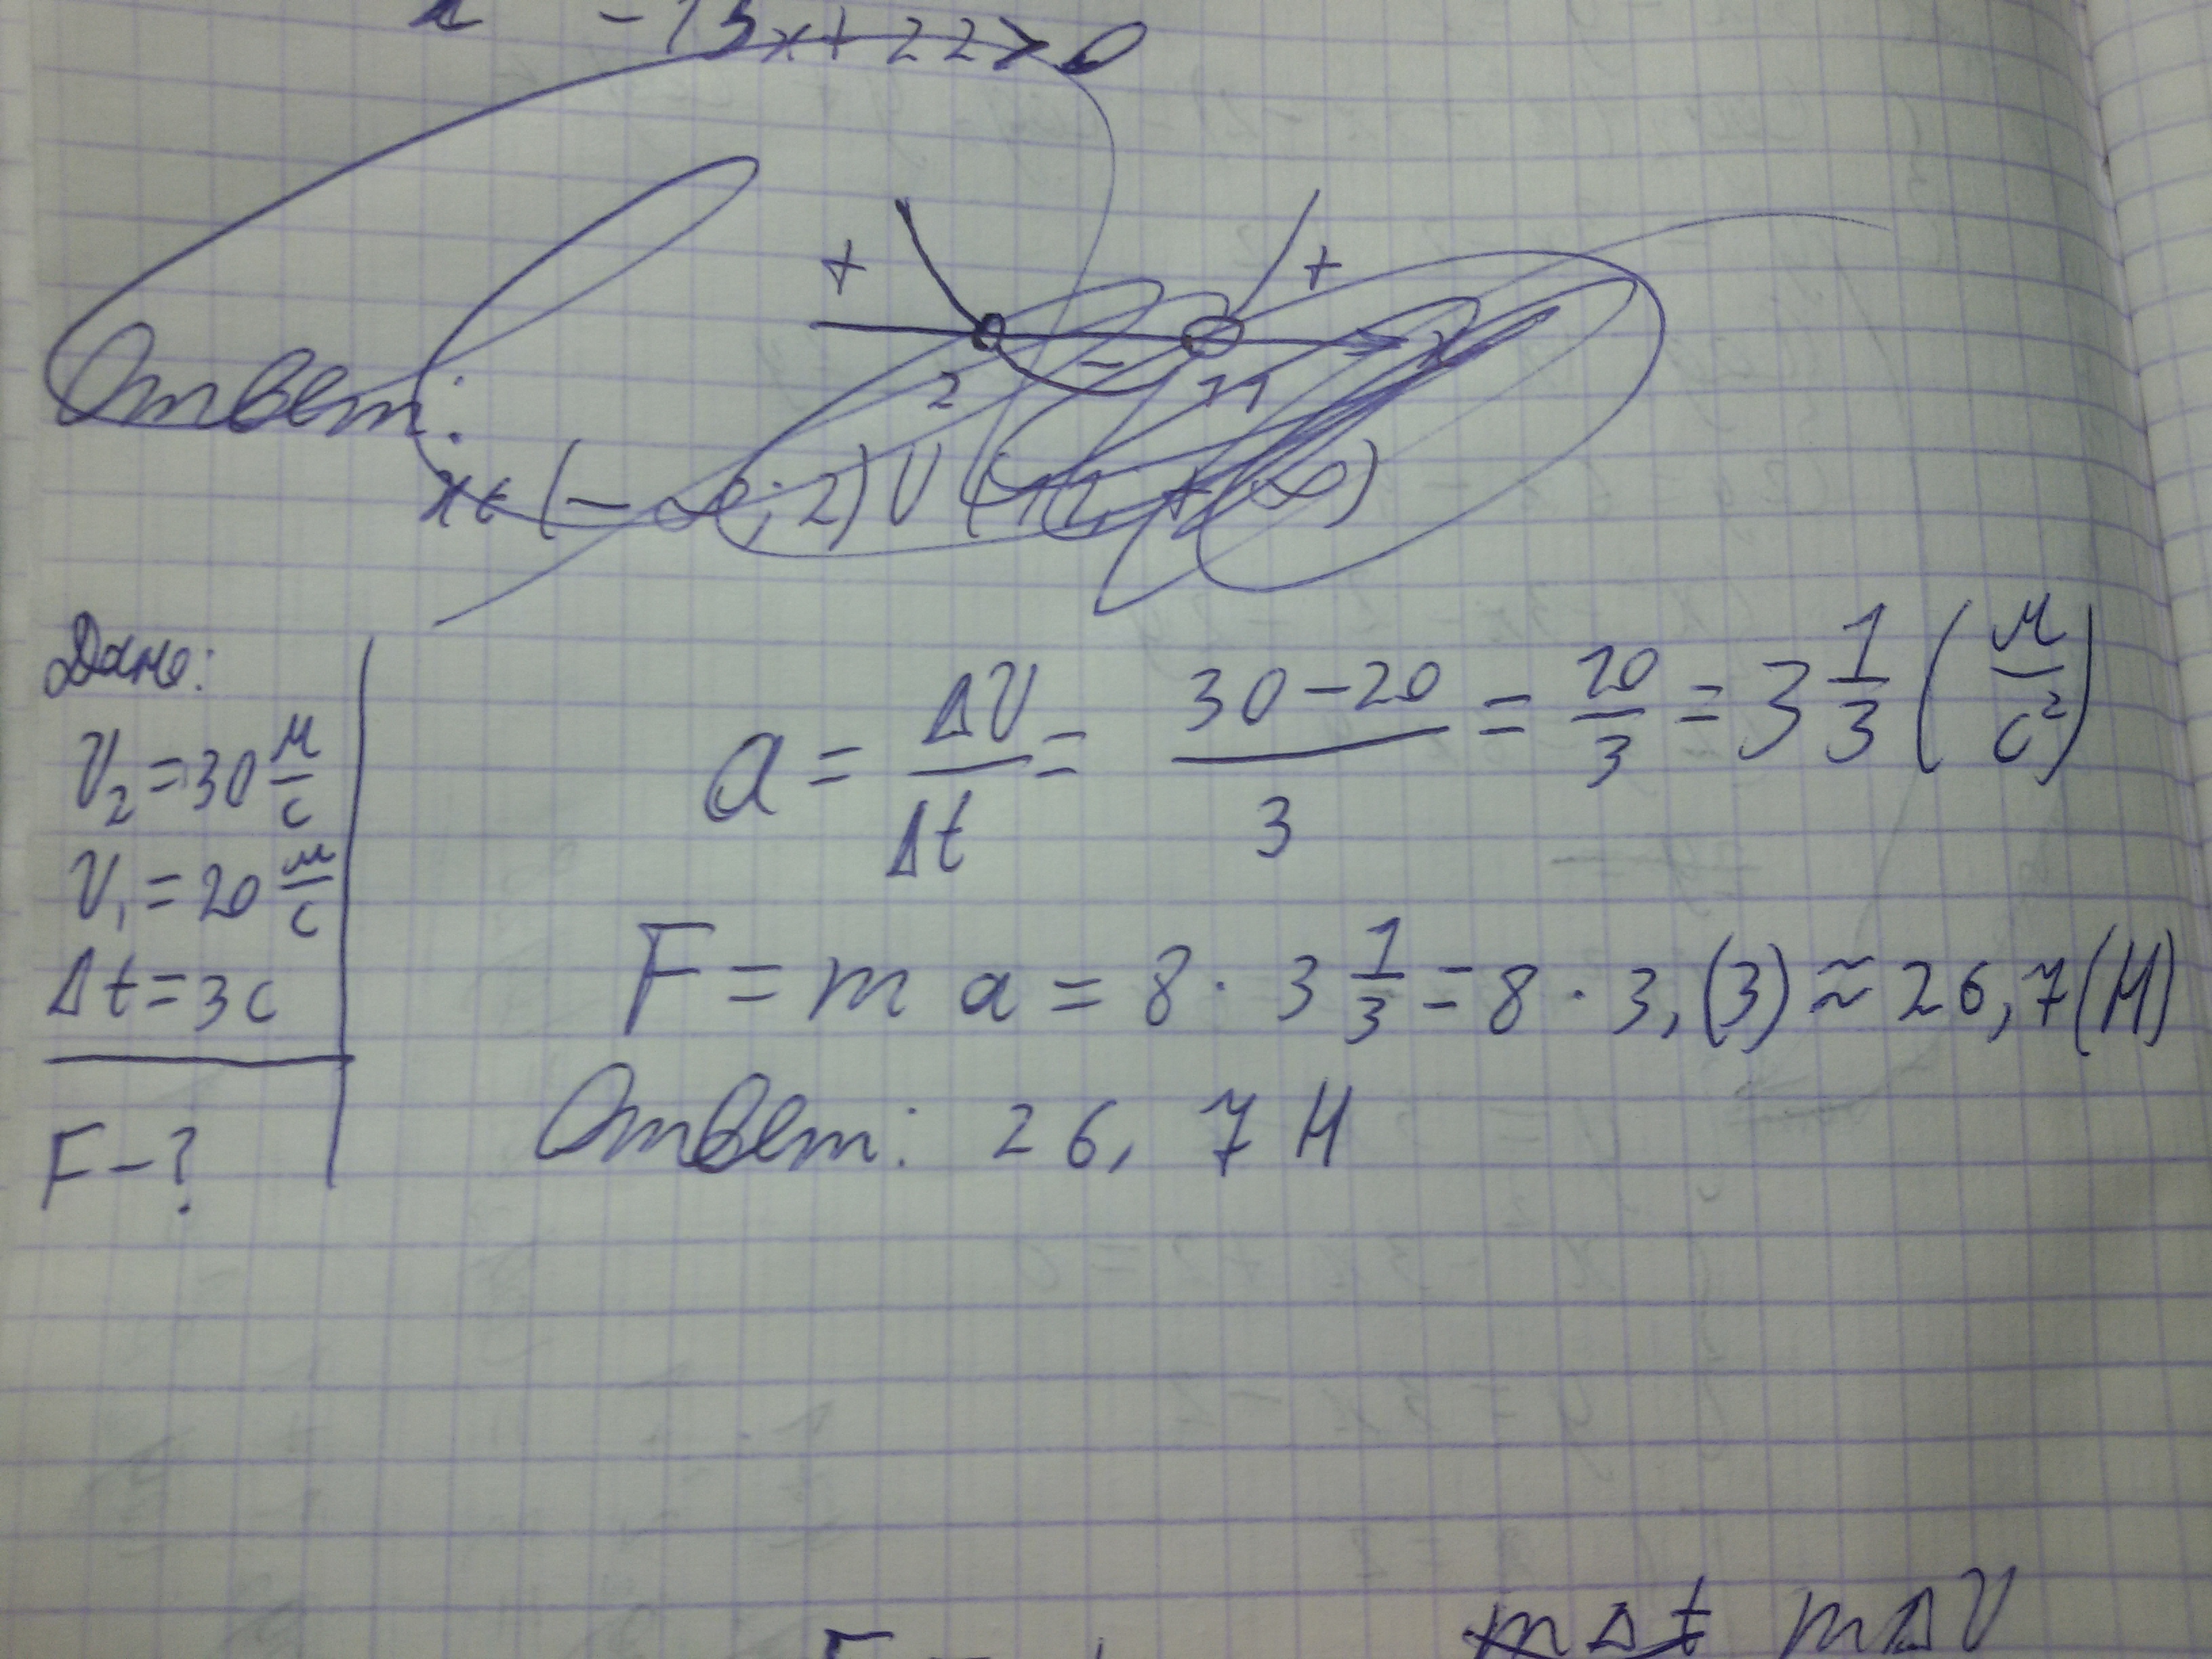 - 13x + 22 > 0
+ +
-
2 11
Ответ:
x ∈ (- ∞; 2) U (11; + ∞)
Дано:
V₂ = 30 м/с
V₁ = 20 м/с
Δt = 3с
F - ?
a = ΔV/Δt = (30 - 20)/3 = 10/3 = 3 1/3 (м/с²)
F = m a = 8 · 3 1/3 = 8 · 3,(3) ≈ 26,7 (Н)
Ответ: 26,7 Н
mΔt mΔV